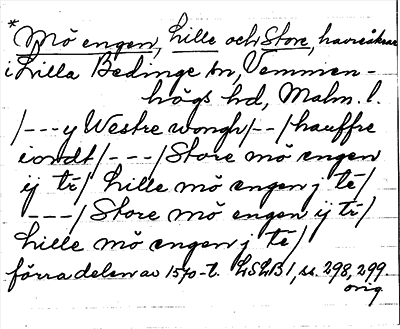 * Mö engen, Lille och Store, havreåkrar
i Lilla Bedinge sn, Vemmen-
högs hd, Malm. l.
/---y Westre wongh/--/hauffre
iordt/---/Store mö engen
ij tr/ Lille mö engen j te/
---/Store mö engen ij tr/
Lille mö engen j te/
förra delen av 1570-t. LSLB 1, ss. 298, 299.
orig